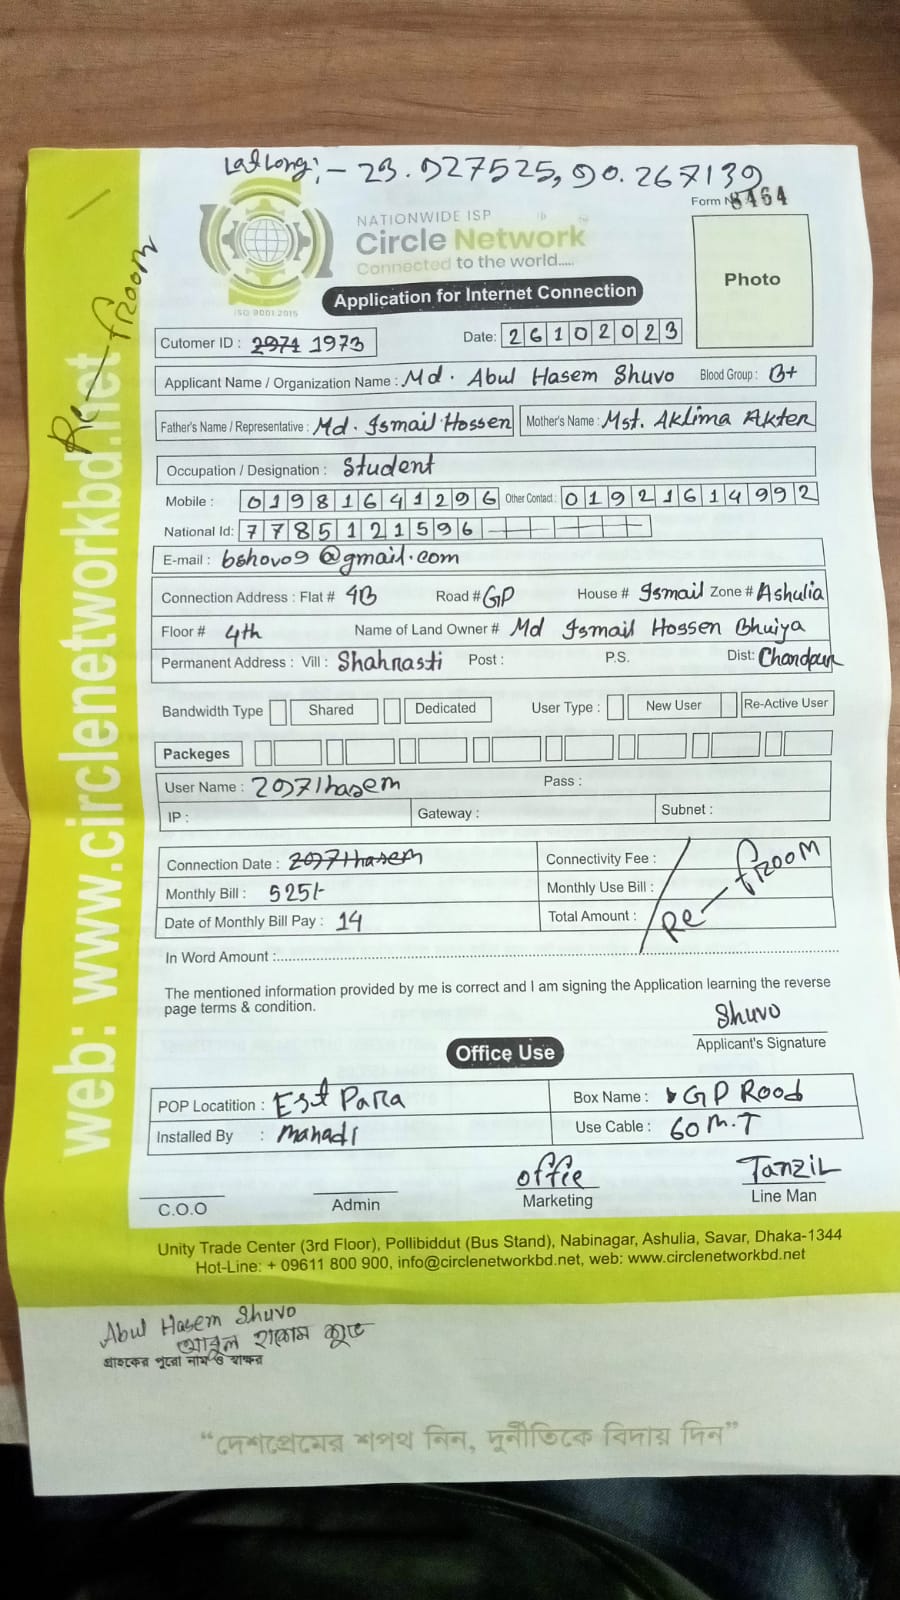 Lat Long:- 23.927525, 90.267139
Form No 8464
NATIONWIDE ISP
Circle Network
Connected to the world.....
ISO 9001:2015
Application for Internet Connection
Photo
Re-from
web: www.circlenetworkbd.net
Cutomer ID : 2971 1973
Date: 26102023
Applicant Name / Organization Name : Md. Abul Hasem Shuvo Blood Group : B+
Father's Name / Representative : Md. Ismail Hossen Mother's Name : Mst. Aklima Akter
Occupation / Designation : Student
Mobile : 01981641296 Other Contact : 01921614992
National Id: 7785121596
E-mail : bshovo9@gmail.com
Connection Address : Flat # 4B Road # GP House # Ismail Zone # Ashulia
Floor # 4th Name of Land Owner # Md Ismail Hossen Bhuiya
Permanent Address : Vill : Shahrasti Post : P.S. Dist: Chandpur
Bandwidth Type Shared Dedicated User Type : New User Re-Active User
Packeges
User Name : 2971hasem Pass :
IP : Gateway : Subnet :
Connection Date : 2971hasem Connectivity Fee :
Monthly Bill : 525/- Monthly Use Bill :
Date of Monthly Bill Pay : 14 Total Amount :
Re-from
In Word Amount :
The mentioned information provided by me is correct and I am signing the Application learning the reverse
page terms & condition.
Shuvo
Applicant's Signature
Office Use
POP Locatition : Est Para Box Name : GP Rood
Installed By : Mahadi Use Cable : 60 M.T
offie Tanzil
C.O.O Admin Marketing Line Man
Unity Trade Center (3rd Floor), Pollibiddut (Bus Stand), Nabinagar, Ashulia, Savar, Dhaka-1344
Hot-Line: + 09611 800 900, info@circlenetworkbd.net, web: www.circlenetworkbd.net
Abul Hasem Shuvo
আবুল হাসেম শুভ
গ্রাহকের পুরো নাম ও স্বাক্ষর
“দেশপ্রেমের শপথ নিন, দুর্নীতিকে বিদায় দিন”